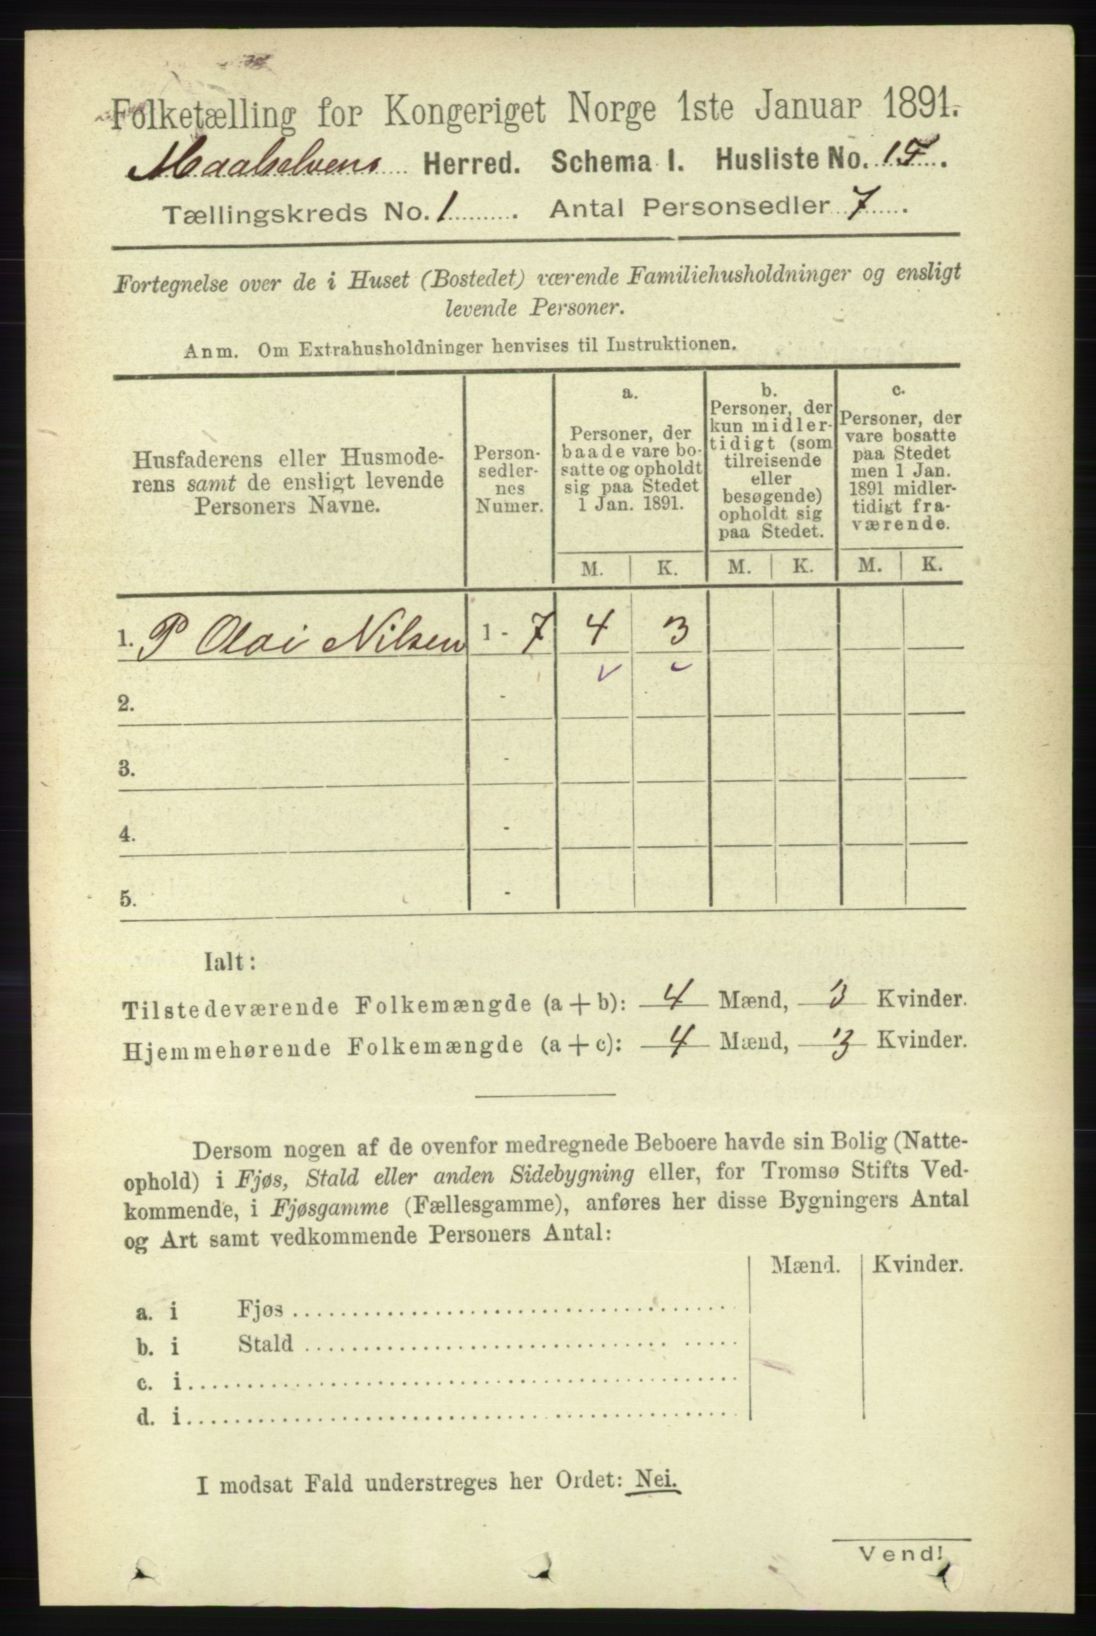 Folketælling for Kongeriget Norge 1ste Januar 1891.
Maalselvens Herred. Schema I. Husliste No. 15.
Tællingskreds No. 1. Antal Personsedler 7.
Fortegnelse over de i Huset (Bostedet) værende Familiehusholdninger og ensligt
levende Personer.
Anm. Om Extrahusholdninger henvises til Instruktionen.
Husfaderens eller Husmode-
rens samt de ensligt levende
Personers Navne.
Person-
sedler-
nes
Numer.
a.
Personer, der
baade vare bo-
satte og opholdt
sig paa Stedet
1 Jan. 1891.
b.
Personer, der
kun midler-
tidigt (som
tilreisende
eller
besøgende)
opholdt sig
paa Stedet.
c.
Personer, der
vare bosatte
paa Stedet
men 1 Jan.
1891 midler-
tidigt fra-
værende.
M. K. M. K. M. K.
1. P Olai Nilsen 1 - 7 4 3
2. -
3. -
4. -
5. -
Ialt:
Tilstedeværende Folkemængde (a + b): 4 Mænd, 3 Kvinder.
Hjemmehørende Folkemængde (a + c): 4 Mænd, 3 Kvinder.
Dersom nogen af de ovenfor medregnede Beboere havde sin Bolig (Natte-
ophold) i Fjøs, Stald eller anden Sidebygning eller, for Tromsø Stifts Ved-
kommende, i Fjøsgamme (Fællesgamme), anføres her disse Bygningers Antal
og Art samt vedkommende Personers Antal:
Mænd. Kvinder.
a. i Fjøs
b. i Stald
c. i
d. i
I modsat Fald understreges her Ordet: Nei.
Vend!